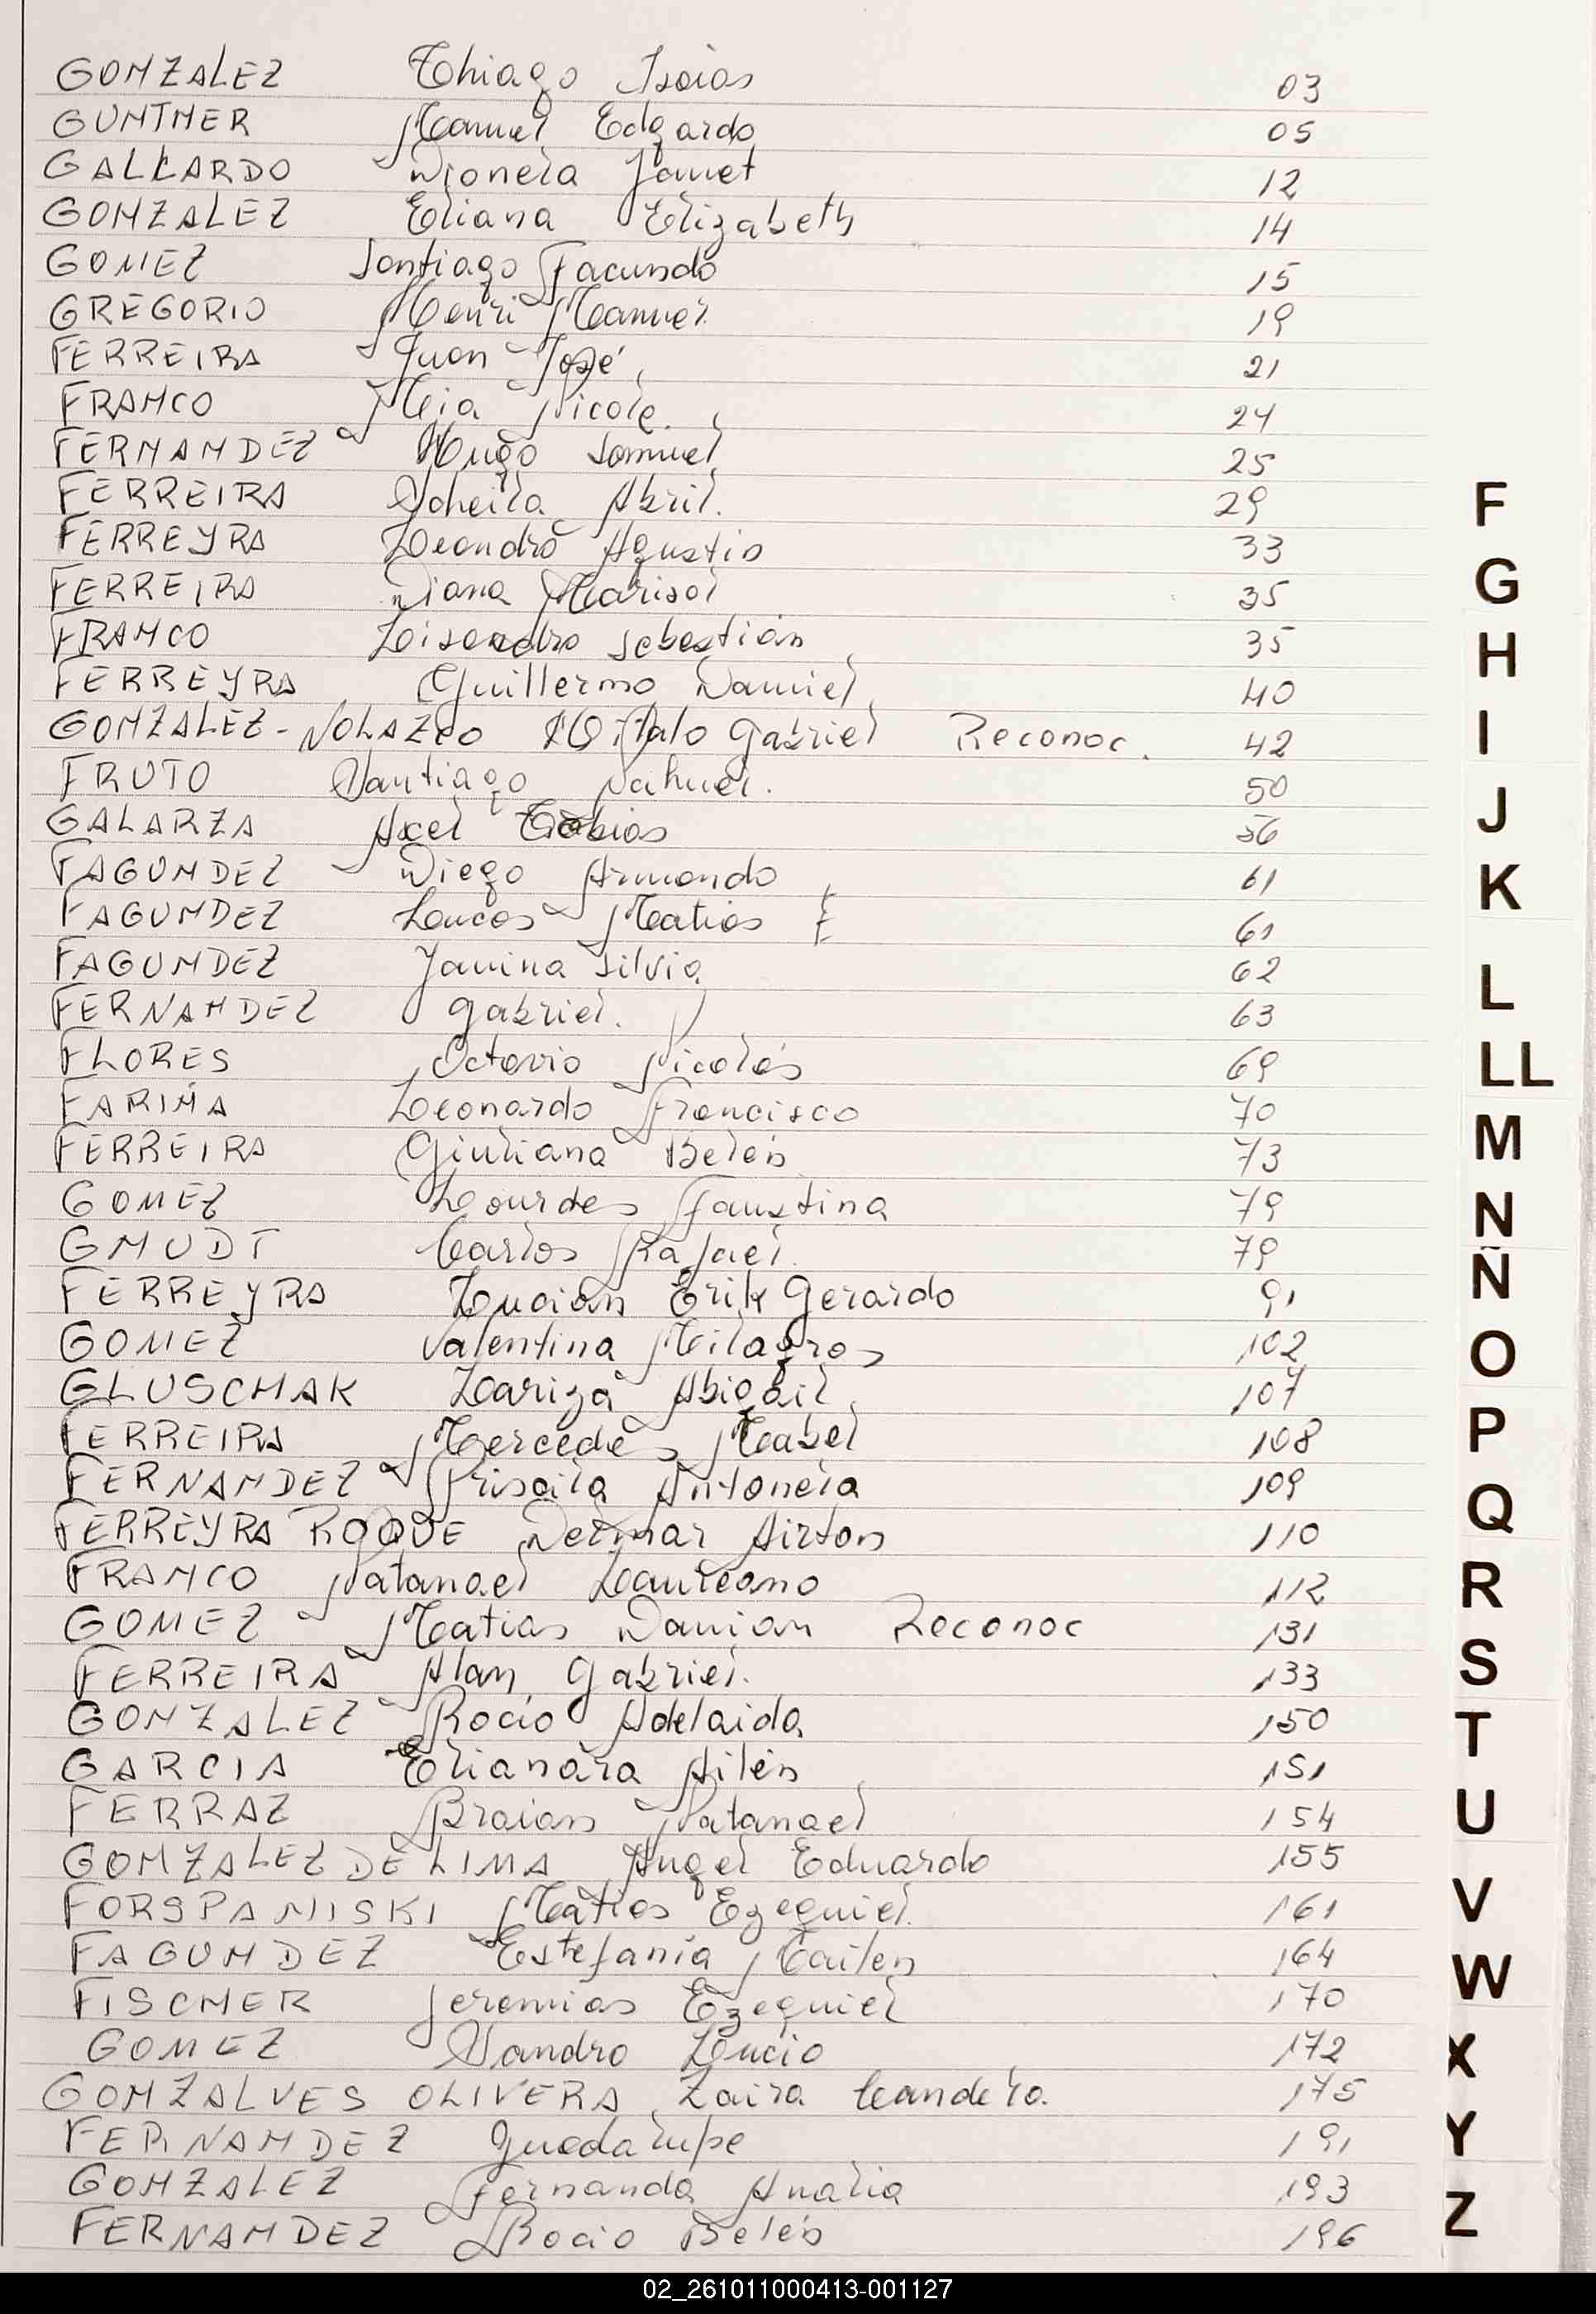 GONZALEZ Thiago Isaias 03
GUNTHER Manuel Edgardo 05
GALLARDO Dionela Janet 12
GONZALEZ Eliana Elizabeth 14
GOMEZ Santiago Facundo 15
GREGORIO Henri Manuel 19
FERREIRA Juan José 21
FRANCO Mia Nicole 24
FERNANDEZ Hugo Samuel 25
FERREIRA Sheila Abril. 29
FERREYRA Leandro Agustin 33
FERREIRA Diana Marisol 35
FRANCO Lisandro Sebastián 35
FERREYRA Guillermo Daniel 40
GONZALEZ-NOLAZCO Gabriel Reconoc. 42
FRUTO Santiago Nahuel. 50
GALARZA Axel Tobias 56
FAGUNDEZ Diego Armando 61
FAGUNDEZ Lucas Matias 61
FAGUNDEZ Janina Silvia 62
FERNANDEZ Gabriel. 63
FLORES Octavio Nicolás 69
FARIÑA Leonardo Francisco 70
FERREIRA Giuliana Belén 73
GOMEZ Lourdes Faustina 79
GMUDT Carlos Rafael 79
FERREYRA Lucian Erik Gerardo 91
GOMEZ Valentina Milagros 102
GLUSCHAK Lariza Abigail 107
FERREIRA Mercedes Mabel 108
FERNANDEZ Priscila Antonela 109
FERREYRA ROQUE Airton 110
FRANCO Natanael Laureano 112
GOMEZ Matias Damian Reconoc 131
FERREIRA Alan Gabriel. 133
GONZALEZ Rocio Adelaida 150
GARCIA Elianara Ailén 151
FERRAZ Braian Natanael 154
GONZALEZ DE LIMA Angel Eduardo 155
FORSPANISKI Matias Ezequiel. 161
FAGUNDEZ Estefania Mailen 164
FISCHER Jeremias Ezequiel 170
GOMEZ Sandro Lucio 172
GONZALVES OLIVERA Zaira Candela. 175
FERNANDEZ Guadalupe 191
GONZALEZ Fernanda Analia 193
FERNANDEZ Rocio Belén 196
F
G
H
I
J
K
L
LL
M
N
Ñ
O
P
Q
R
S
T
U
V
W
X
Y
Z
02_261011000413-001127